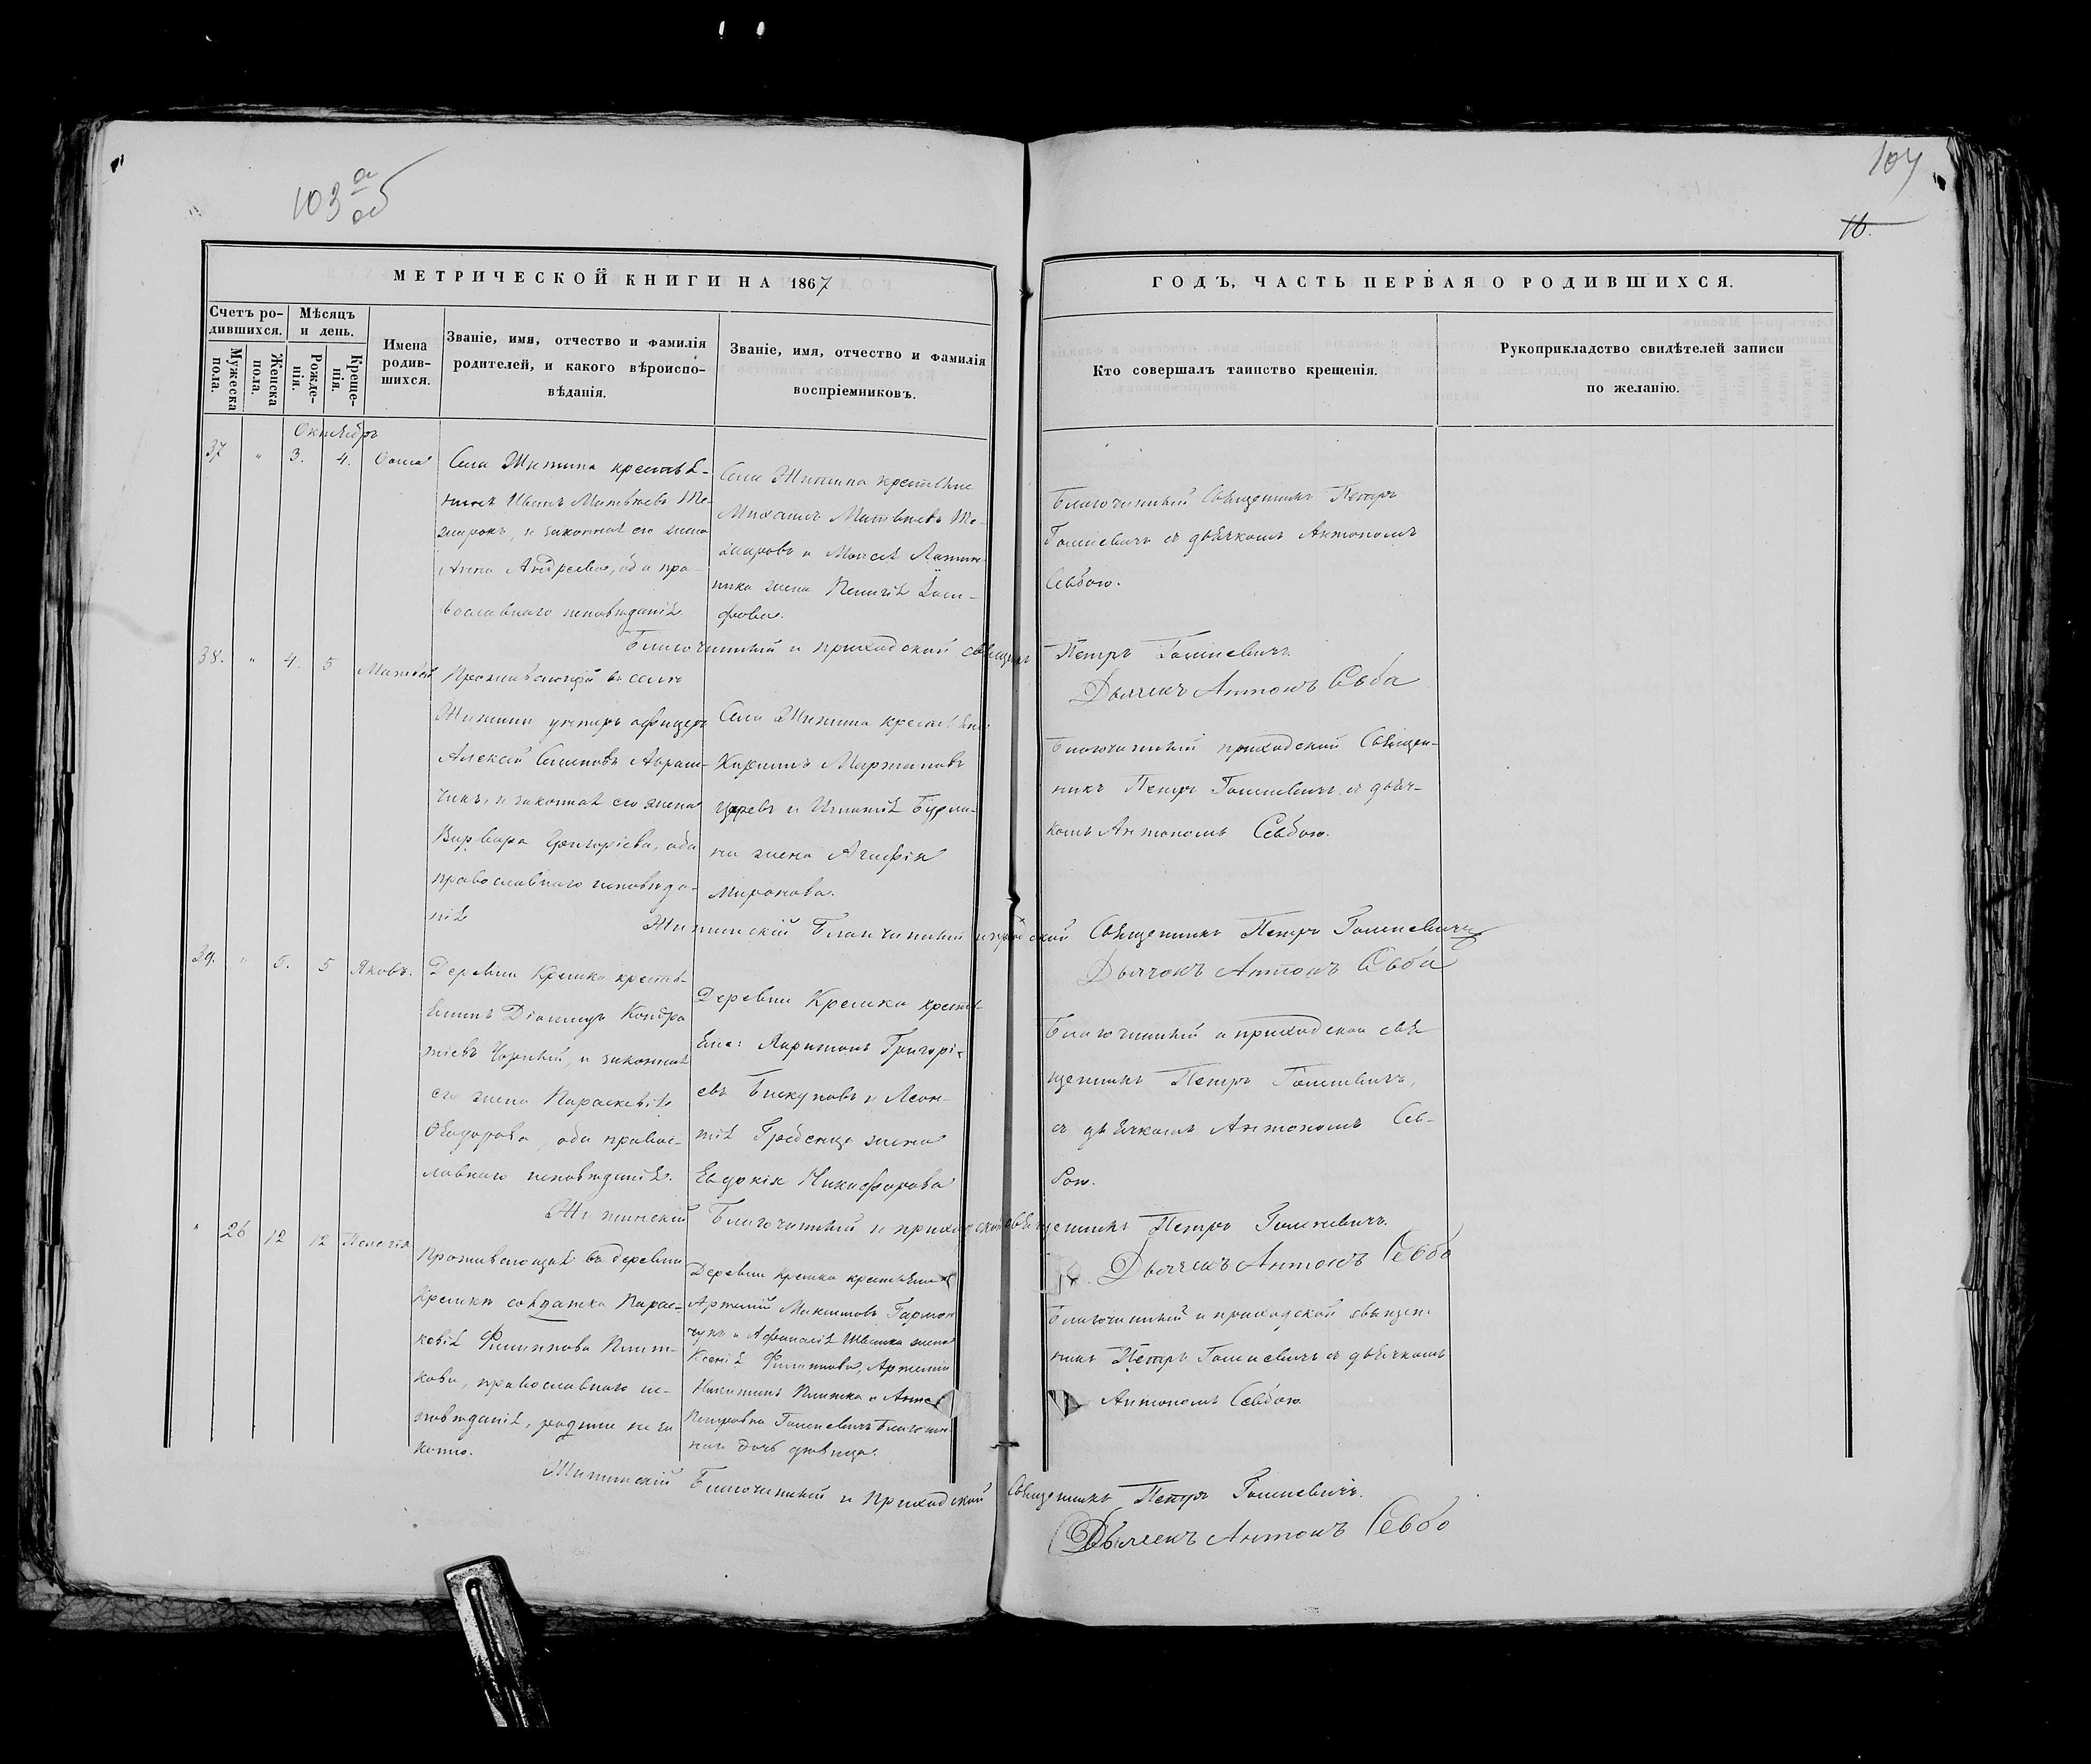 103 а об
104
16.
МЕТРИЧЕСКОЙ КНИГИ НА 1867
ГОДЪ, ЧАСТЬ ПЕРВАЯ О РОДИВШИХСЯ.
Счетъ ро-
дившихся.
Мужеска
пола.
Женска
пола.
Мѣсяцъ
и день.
Рожде-
нія.
Креще-
нія.
Имена
родив-
шихся.
Званіе, имя, отчество и фамилія
родителей, и какого вѣроиспо-
вѣданія.
Званіе, имя, отчество и фамилія
воспріемниковъ.
Кто совершалъ таинство крещенія.
Рукоприкладство свидѣтелей записи
по желанію.
Октябрь
37 " 3. 4. Ѳома
Села Житина крестья-
нинъ Иванъ Матвѣевъ
и законная его жена
Анна Андреева, оба пра-
вославнаго исповѣданія.
Села Житина крестьяне
Михаилъ Матвѣевъ
и Моисея
жена Пелагія Іоси-
фова.
Благочинный Священникъ Петръ
съ дьячкомъ Антономъ
Севбою.
Благочинный и приходской священникъ Петръ
Дьячекъ Антонъ Севба
38. " 4. 5 Матвей
Проживающій въ селѣ
Житини унтеръ офицеръ
Алексей Семеновъ Абрам-
чикъ, и законная его жена
Варвара Григоріева, оба
православнаго исповѣда-
нія
Села Житина крестьяне:
Харитонъ Мартиновъ
и Игнатія Бурма-
ки жена Агафія
Миронова.
Благочинный приходской Священ-
никъ Петръ съ дьяч-
комъ Антономъ Севбою.
Житинскій Благочинный приходской Священникъ Петръ
Дьячокъ Антонъ Севба
39. " 5. 5 Яковъ.
Деревни Крешка кресть-
янинъ Діомидъ Кондра
тіевъ Чорный, и законная
его жена Параскевія
Ѳеодорова, оба правос-
лавнаго исповѣданія.
Деревни Крешка кресть-
яне: Харитонъ Григорі-
евъ Бискуповъ и Леон-
тія Гребенца жена
Евдокія Никифорова
Благочинный и приходской свя
щенникъ Петръ
съ дьячкомъ Антономъ Сев-
бою.
Житинскій Благочинный и приходской священникъ Петръ
Дьячекъ Антонъ Севба
" 26 12 12 Пелагія
Проживающая въ деревни
Крешки солдатка Парас-
кевія Филиппова Плит-
кова, православнаго ис-
повѣданія, родила неза
конно.
Деревни Крешка крестьяне
Артемій Максимовъ Гармон
чукъ и Афанасія Швайка жена
Ксенія Филиппова, Артемій
Никитинъ Плитка и
Петровна Благочин-
наго дочь дѣвица.
Благочинный и приходской священ-
никъ Петръ съ дьячкомъ
Антономъ Севбою.
Житинскій Благочинный и Приходской Священникъ Петръ
Дьячекъ Антонъ Севба